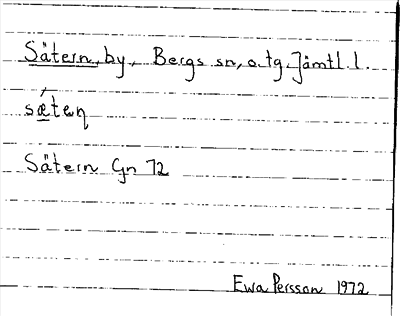 Sätern, by, Bergs sn, o. tg. Jämtl. l.
sǽteꞃ
Sätern Gn 72
Ewa Persson 1972